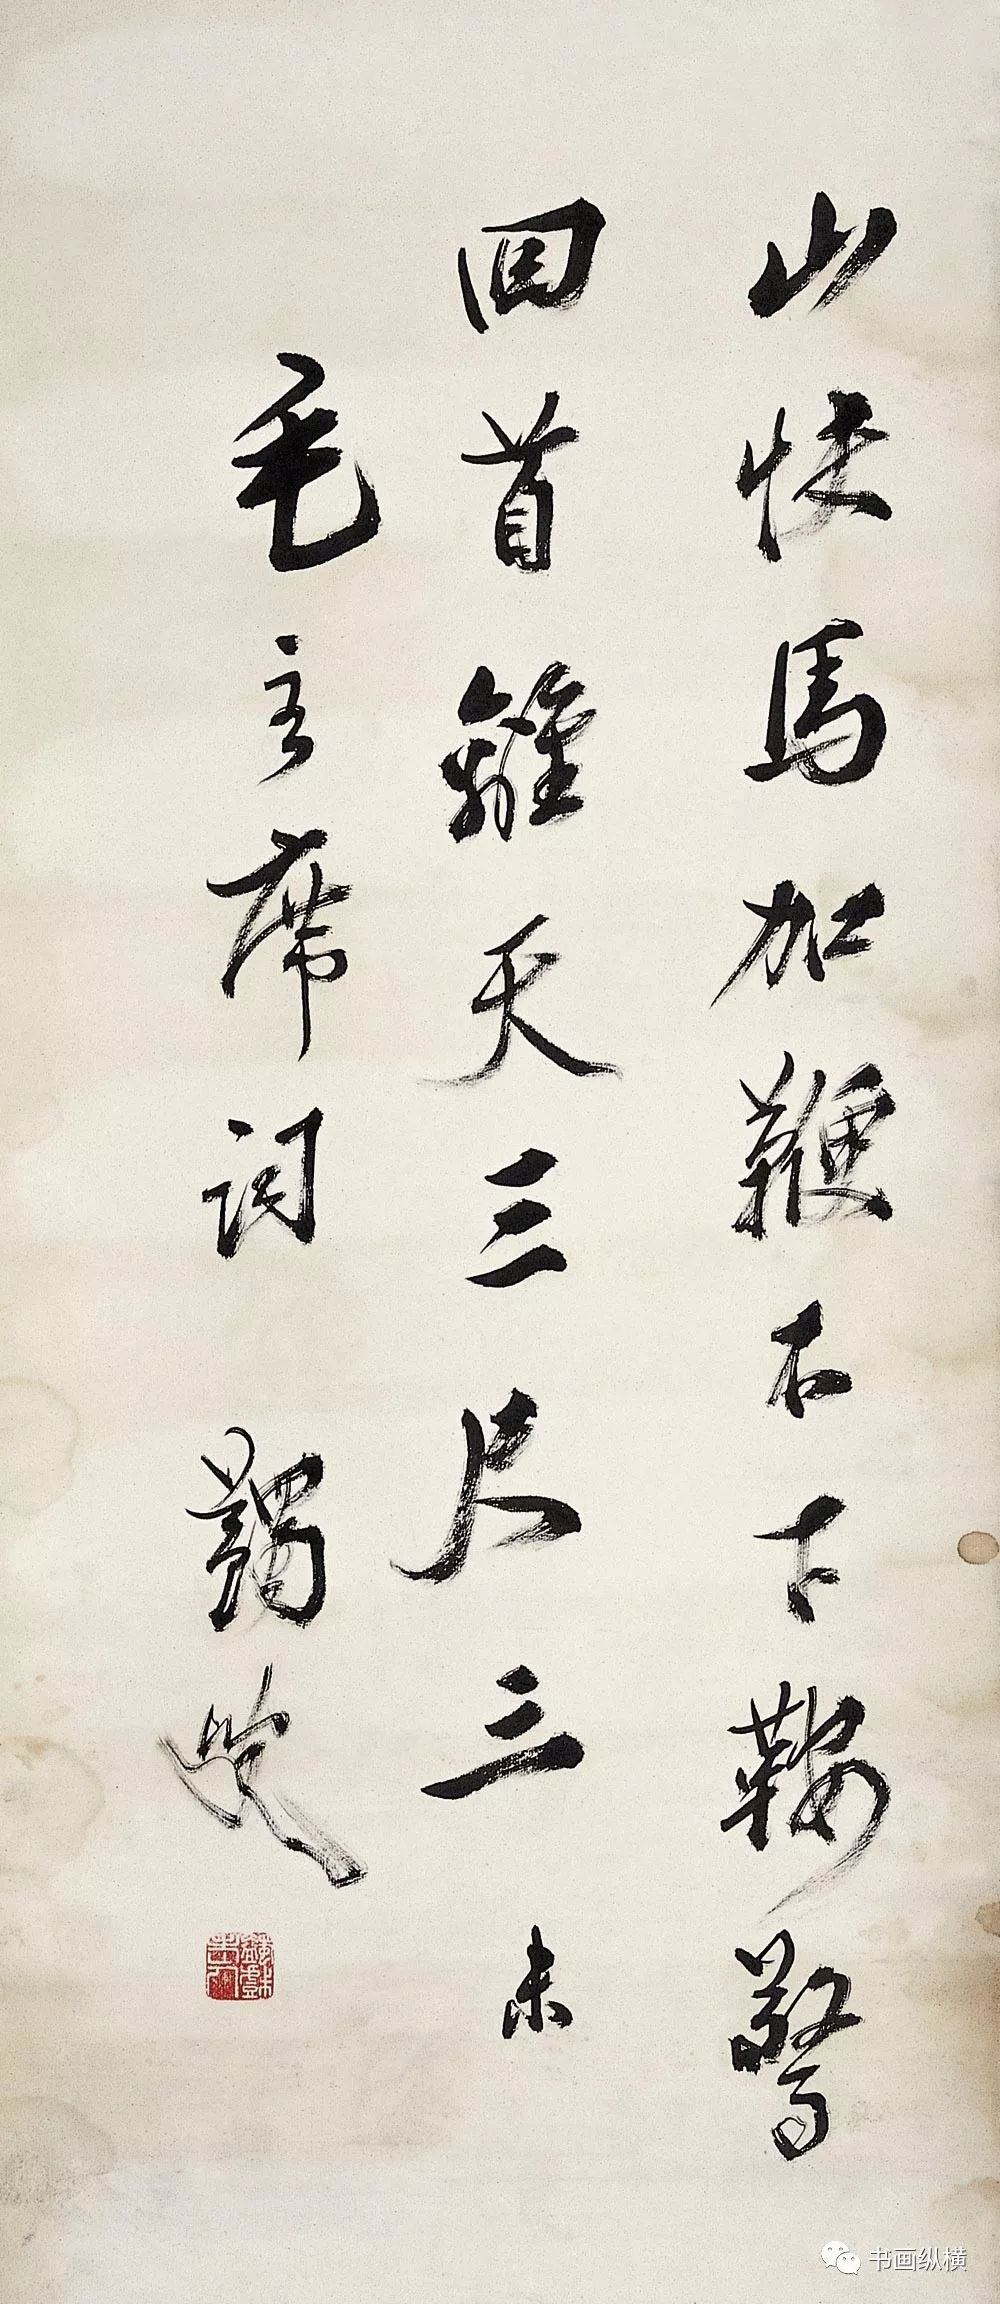 山快馬加鞭不下鞍驚
回首離天三尺三 未
毛主席詞 蠲叟
书画纵横